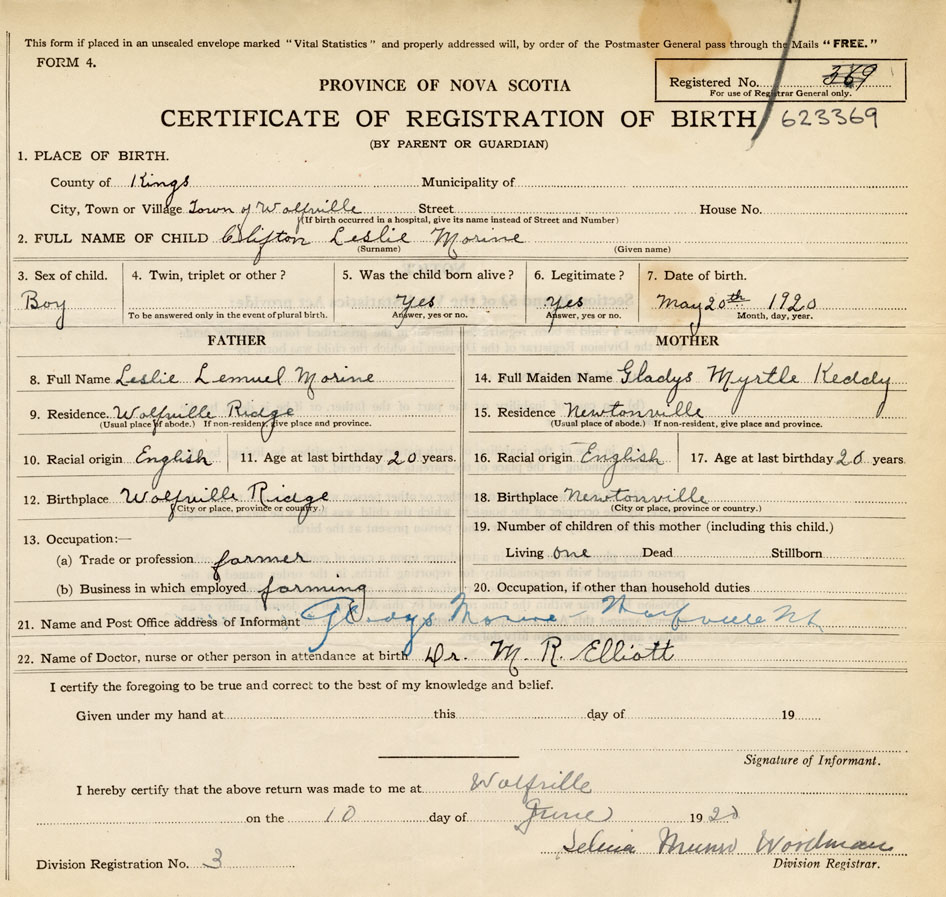 This form if placed in an unsealed envelope marked "Vital Statistics" and properly addressed will, by order of the Postmaster General pass through the Mails "FREE."
FORM 4.
PROVINCE OF NOVA SCOTIA
Registered No. 369
For use of Registrar General only.
CERTIFICATE OF REGISTRATION OF BIRTH 623369
(BY PARENT OR GUARDIAN)
1. PLACE OF BIRTH.
County of Kings Municipality of
City, Town or Village Town of Wolfville Street House No.
(If birth occurred in a hospital, give its name instead of Street and Number)
2. FULL NAME OF CHILD Clifton Leslie Morine
(Surname) (Given name)
3. Sex of child. 4. Twin, triplet or other? 5. Was the child born alive? 6. Legitimate? 7. Date of birth.
Boy Yes Yes May 20th 1920
To be answered only in the event of plural birth. Answer, yes or no. Answer, yes or no. Month, day, year.
FATHER MOTHER
8. Full Name Leslie Lemuel Morine 14. Full Maiden Name Gladys Myrtle Keddy
9. Residence. Wolfville Ridge 15. Residence Newtonville
(Usual place of abode.) If non-resident, give place and province. (Usual place of abode.) If non-resident, give place and province.
10. Racial origin English 11. Age at last birthday 20 years. 16. Racial origin English 17. Age at last birthday 20 years.
12. Birthplace Wolfville Ridge 18. Birthplace Newtonville
(City or place, province or country.) (City or place, province or country.)
13. Occupation:— 19. Number of children of this mother (including this child.)
(a) Trade or profession farmer Living one Dead Stillborn
(b) Business in which employed farming 20. Occupation, if other than household duties
21. Name and Post Office address of Informant Gladys Morine Wolfville NS
22. Name of Doctor, nurse or other person in attendance at birth Dr. M. R. Elliott
I certify the foregoing to be true and correct to the best of my knowledge and belief.
Given under my hand at this day of 19
Signature of Informant.
I hereby certify that the above return was made to me at Wolfville
on the 10 day of June 1920
Munro Woodman
Division Registration No. 3 Division Registrar.